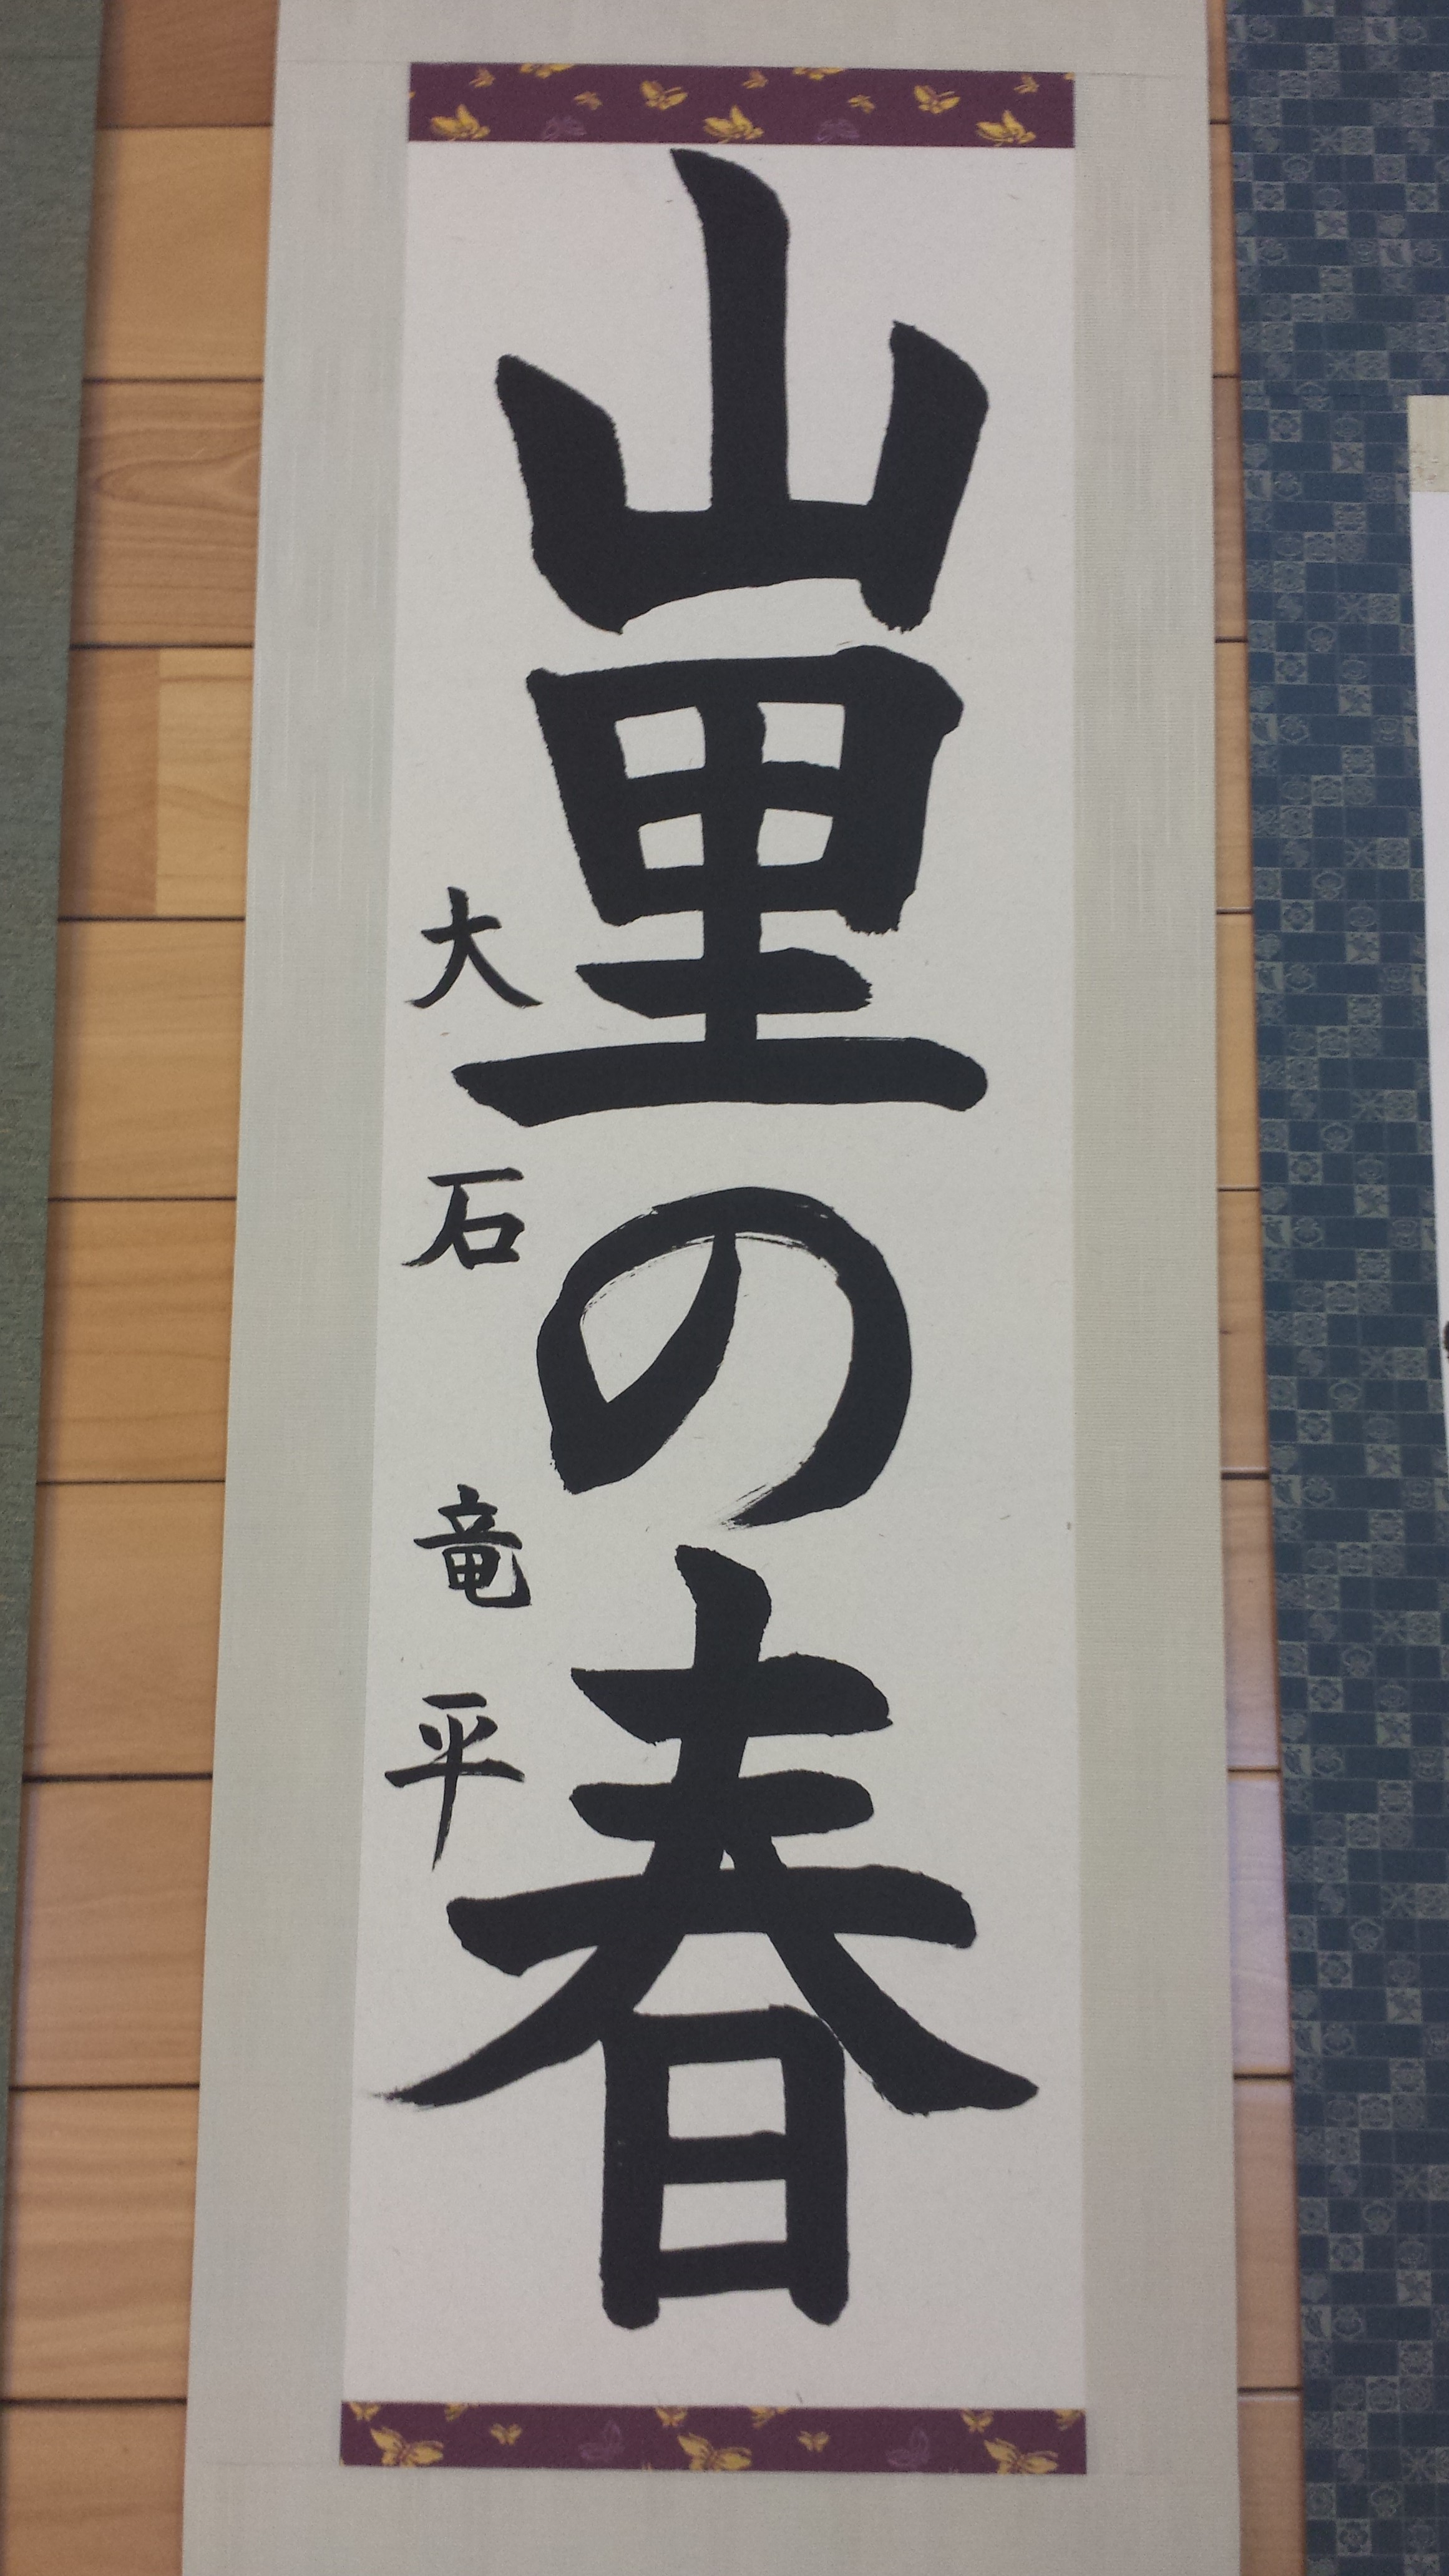 山里の春
大石竜平